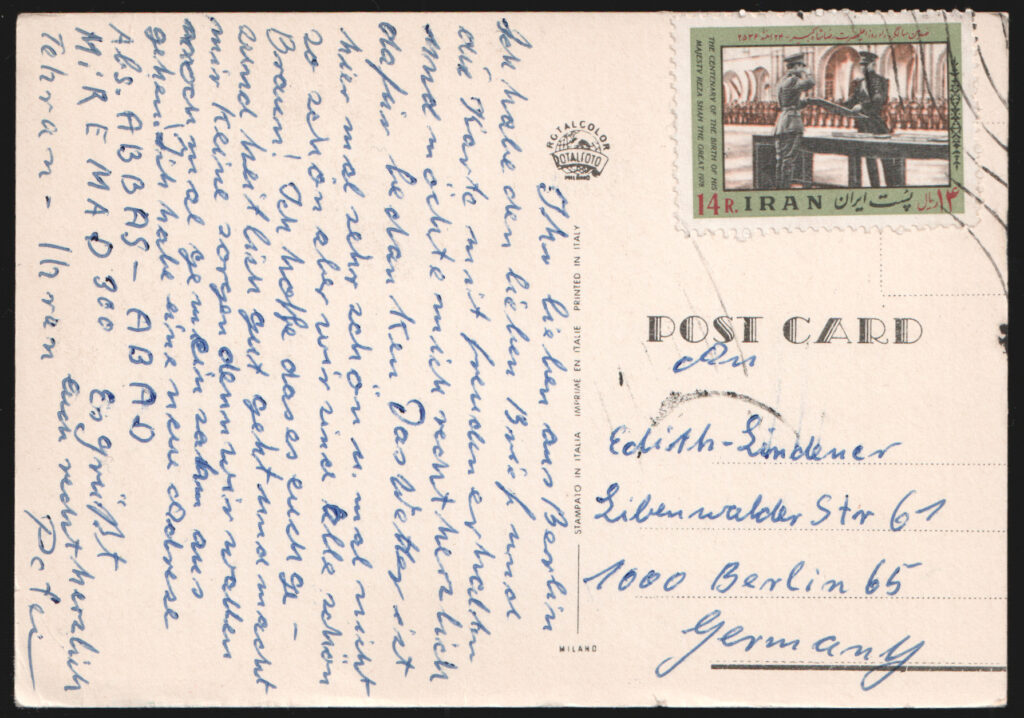 Ihr lieben aus Berlin
Ich habe den lieben Brief und
die Karte mit freuden erhalten
und möchte mich recht herzlich
dafür bedanken Das Wetter ist
hier mal sehr schön u. mal nicht
so schön aber wir sind alle schön
Braun! Ich hoffe das es euch ga-
sund heitlich gut geht und macht
mir keine sorgen denn wir wollen
noch mal gemeinsahm aus
gehen Ich habe eine neue adresse
Abs. ABBAS-ABAD
MiREMAD 300 Es grüßt
Tehran - euch recht herzlich
Peter
ROTALCOLOR
ROTALFOTO
MILANO
STAMPATO IN ITALIA IMPRIME EN ITALIE PRINTED IN ITALY
MILANO
THE CENTENARY OF THE BIRTH OF HIS
MAJESTY REZA SHAH THE GREAT 1978
14 R. IRAN پست ایران ۱۴ ریال
POST CARD
An
Edith-Lindener
Libenwalder Str 61
1000 Berlin 65
Germany